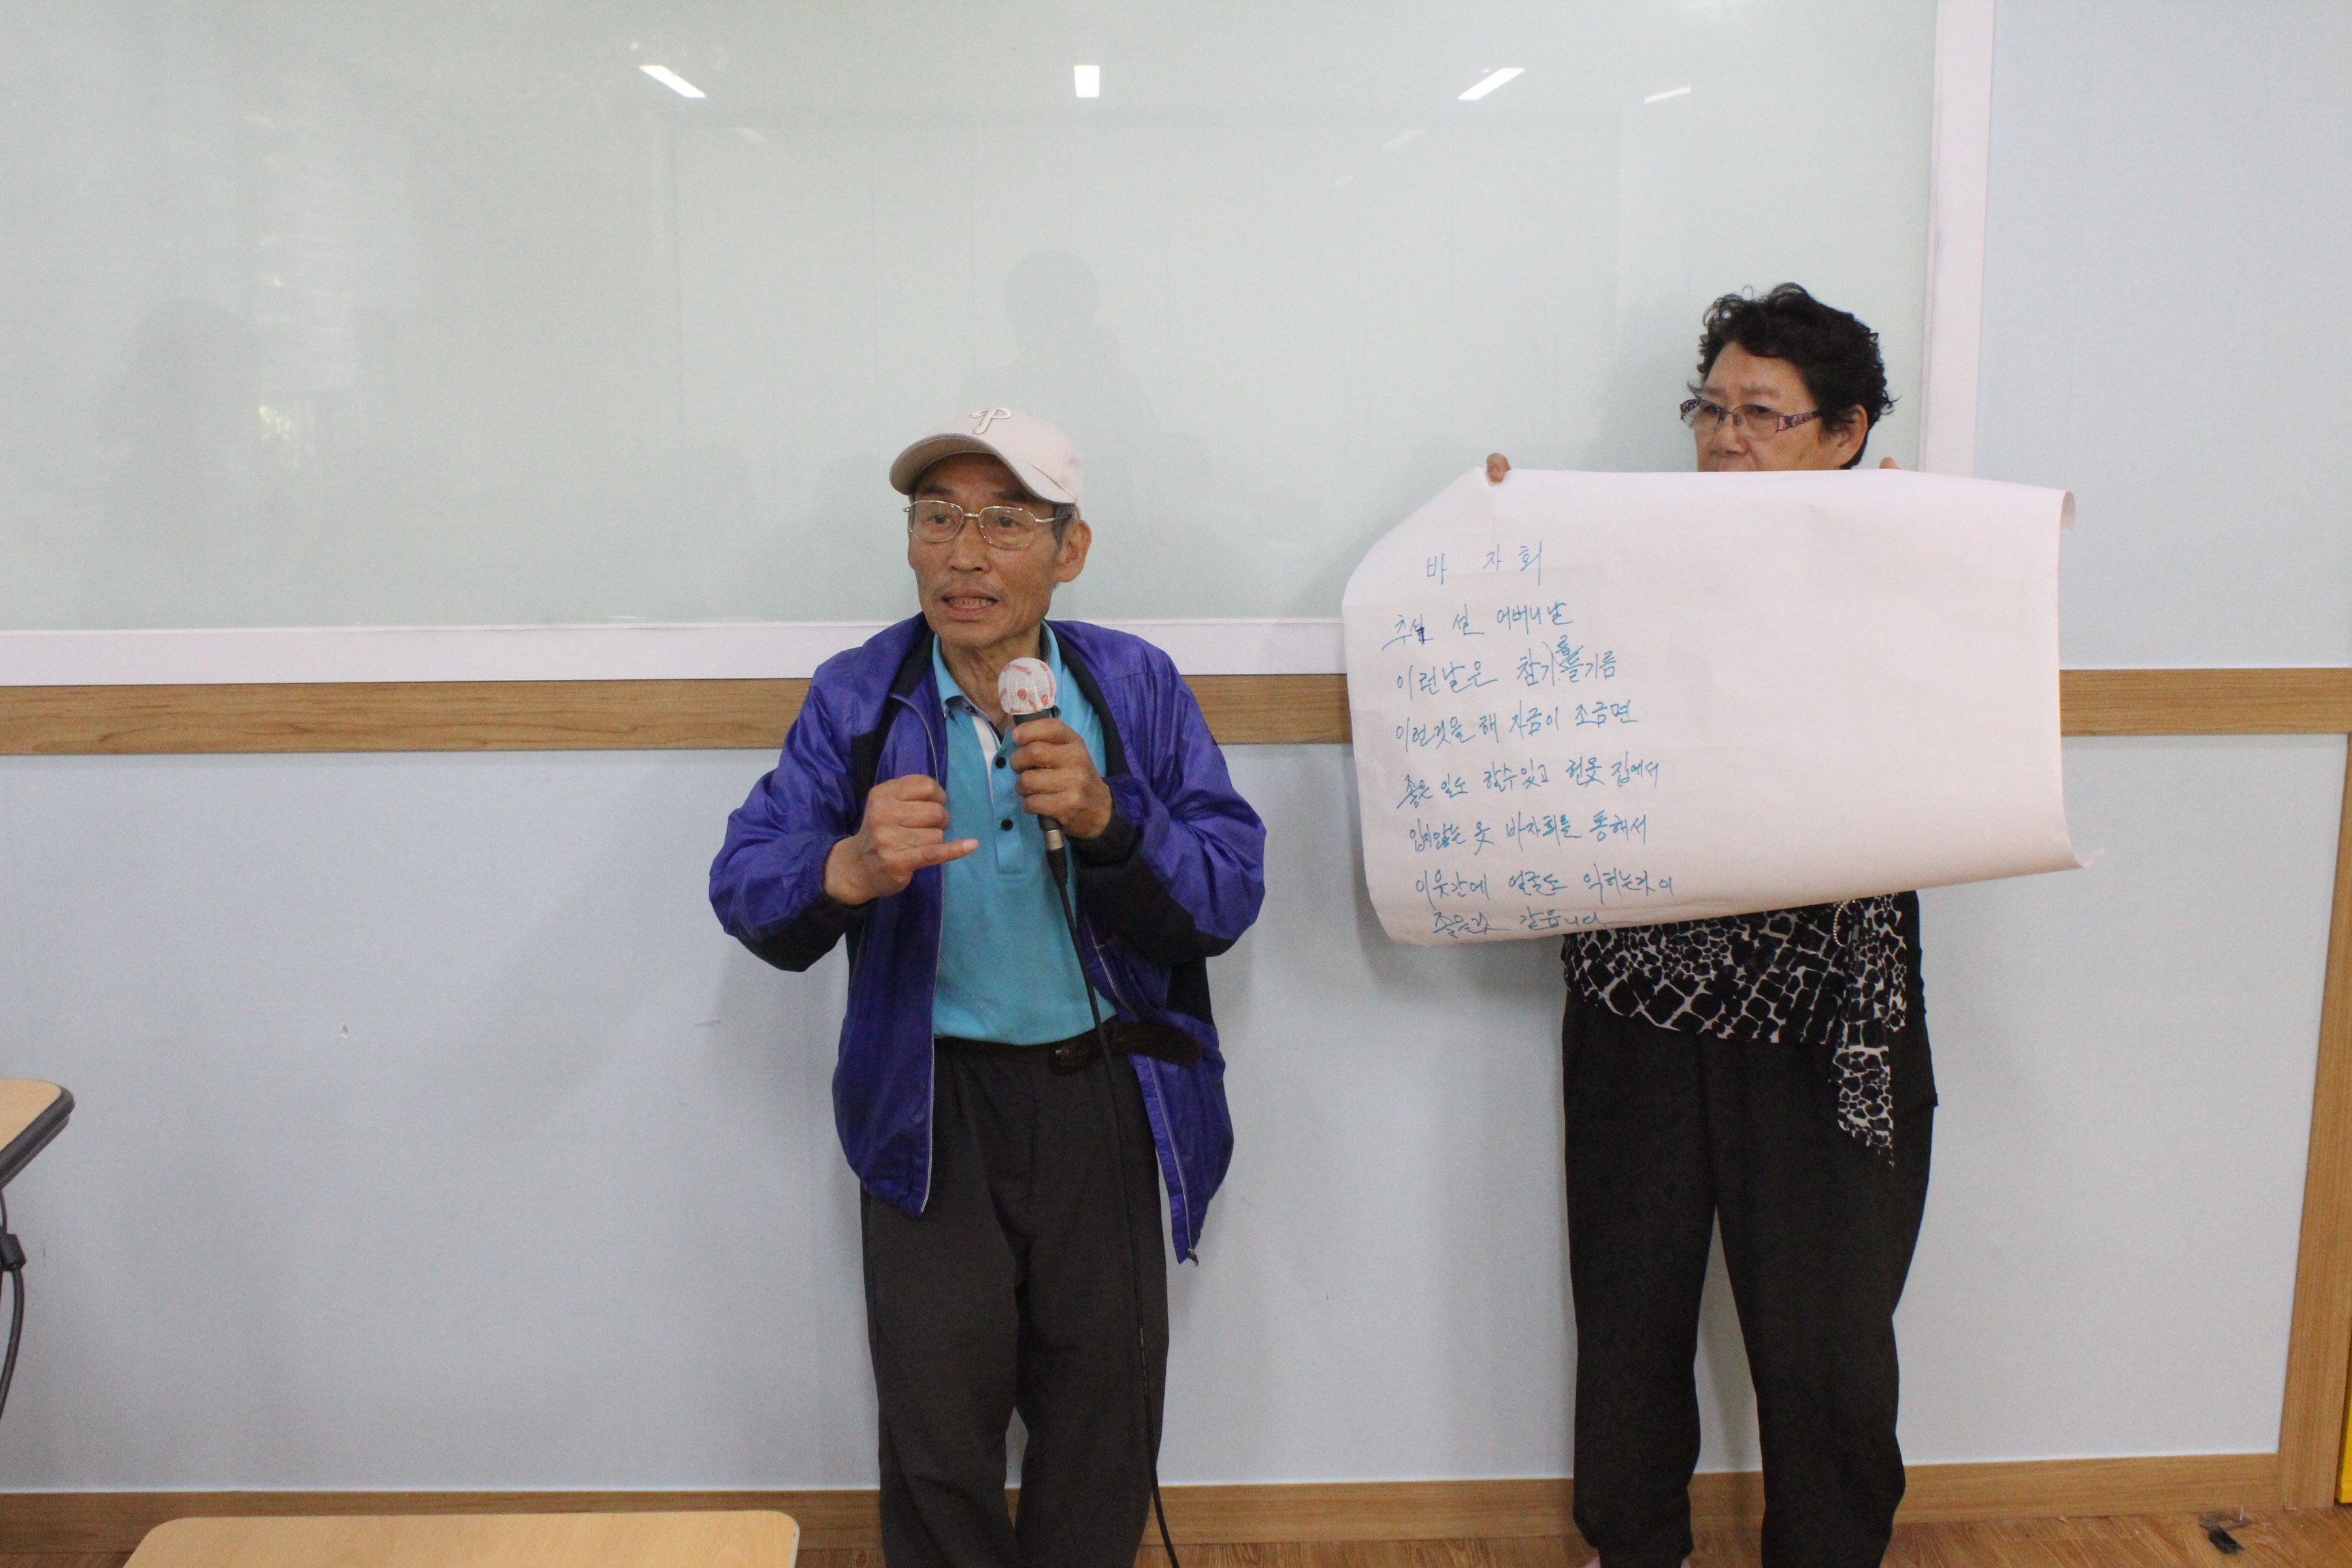 P
바 자 회
추석 설 어버니날
이런날은 참기름 들기름
이런것을 해 자금이 조금면
좋은 일도 할수있고 헌옷 집에서
입지않는 옷 바자회를 통해서
이웃간에 얼굴도 익히는것이
좋은것 같읍니다